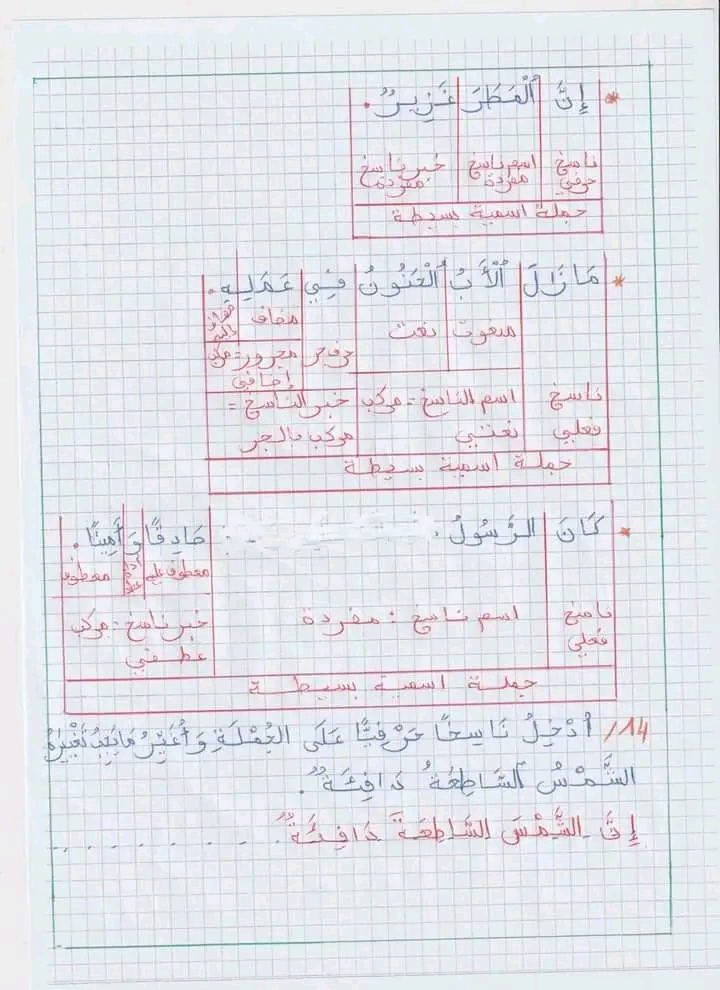 * إِنَّ الْمَطَرَ غَزِيرٌ.
ناسخ حرفي اسم ناسخ مفردة خبر ناسخ مفردة
جملة اسمية بسيطة
* مَازَالَ الْأَبُ الْحَنُونُ فِي عَمَلِهِ.
منعوت نعت مضاف مضاف إليه
حرف جر مجرور = مركب إضافي
ناسخ فعلي اسم الناسخ = مركب نعتي خبر الناسخ = مركب بالجر
جملة اسمية بسيطة
* كَانَ الرَّسُولُ صَادِقًا وَ أَمِينًا.
معطوف عليه أداة عطف معطوف
ناسخ فعلي اسم ناسخ : مفردة خبر ناسخ : مركب عطفي
جملة اسمية بسيطة
14/ أُدْخِلُ نَاسِخًا حَرْفِيًّا عَلَى الجُمْلَةِ وَ أُغَيِّرُ مَا يَجِبُ تَغْيِيرُهُ
الشَّمْسُ السَّاطِعَةُ دَافِئَةٌ.
إنّ الشَّمْسَ السَّاطِعَةَ دَافِئَةٌ.